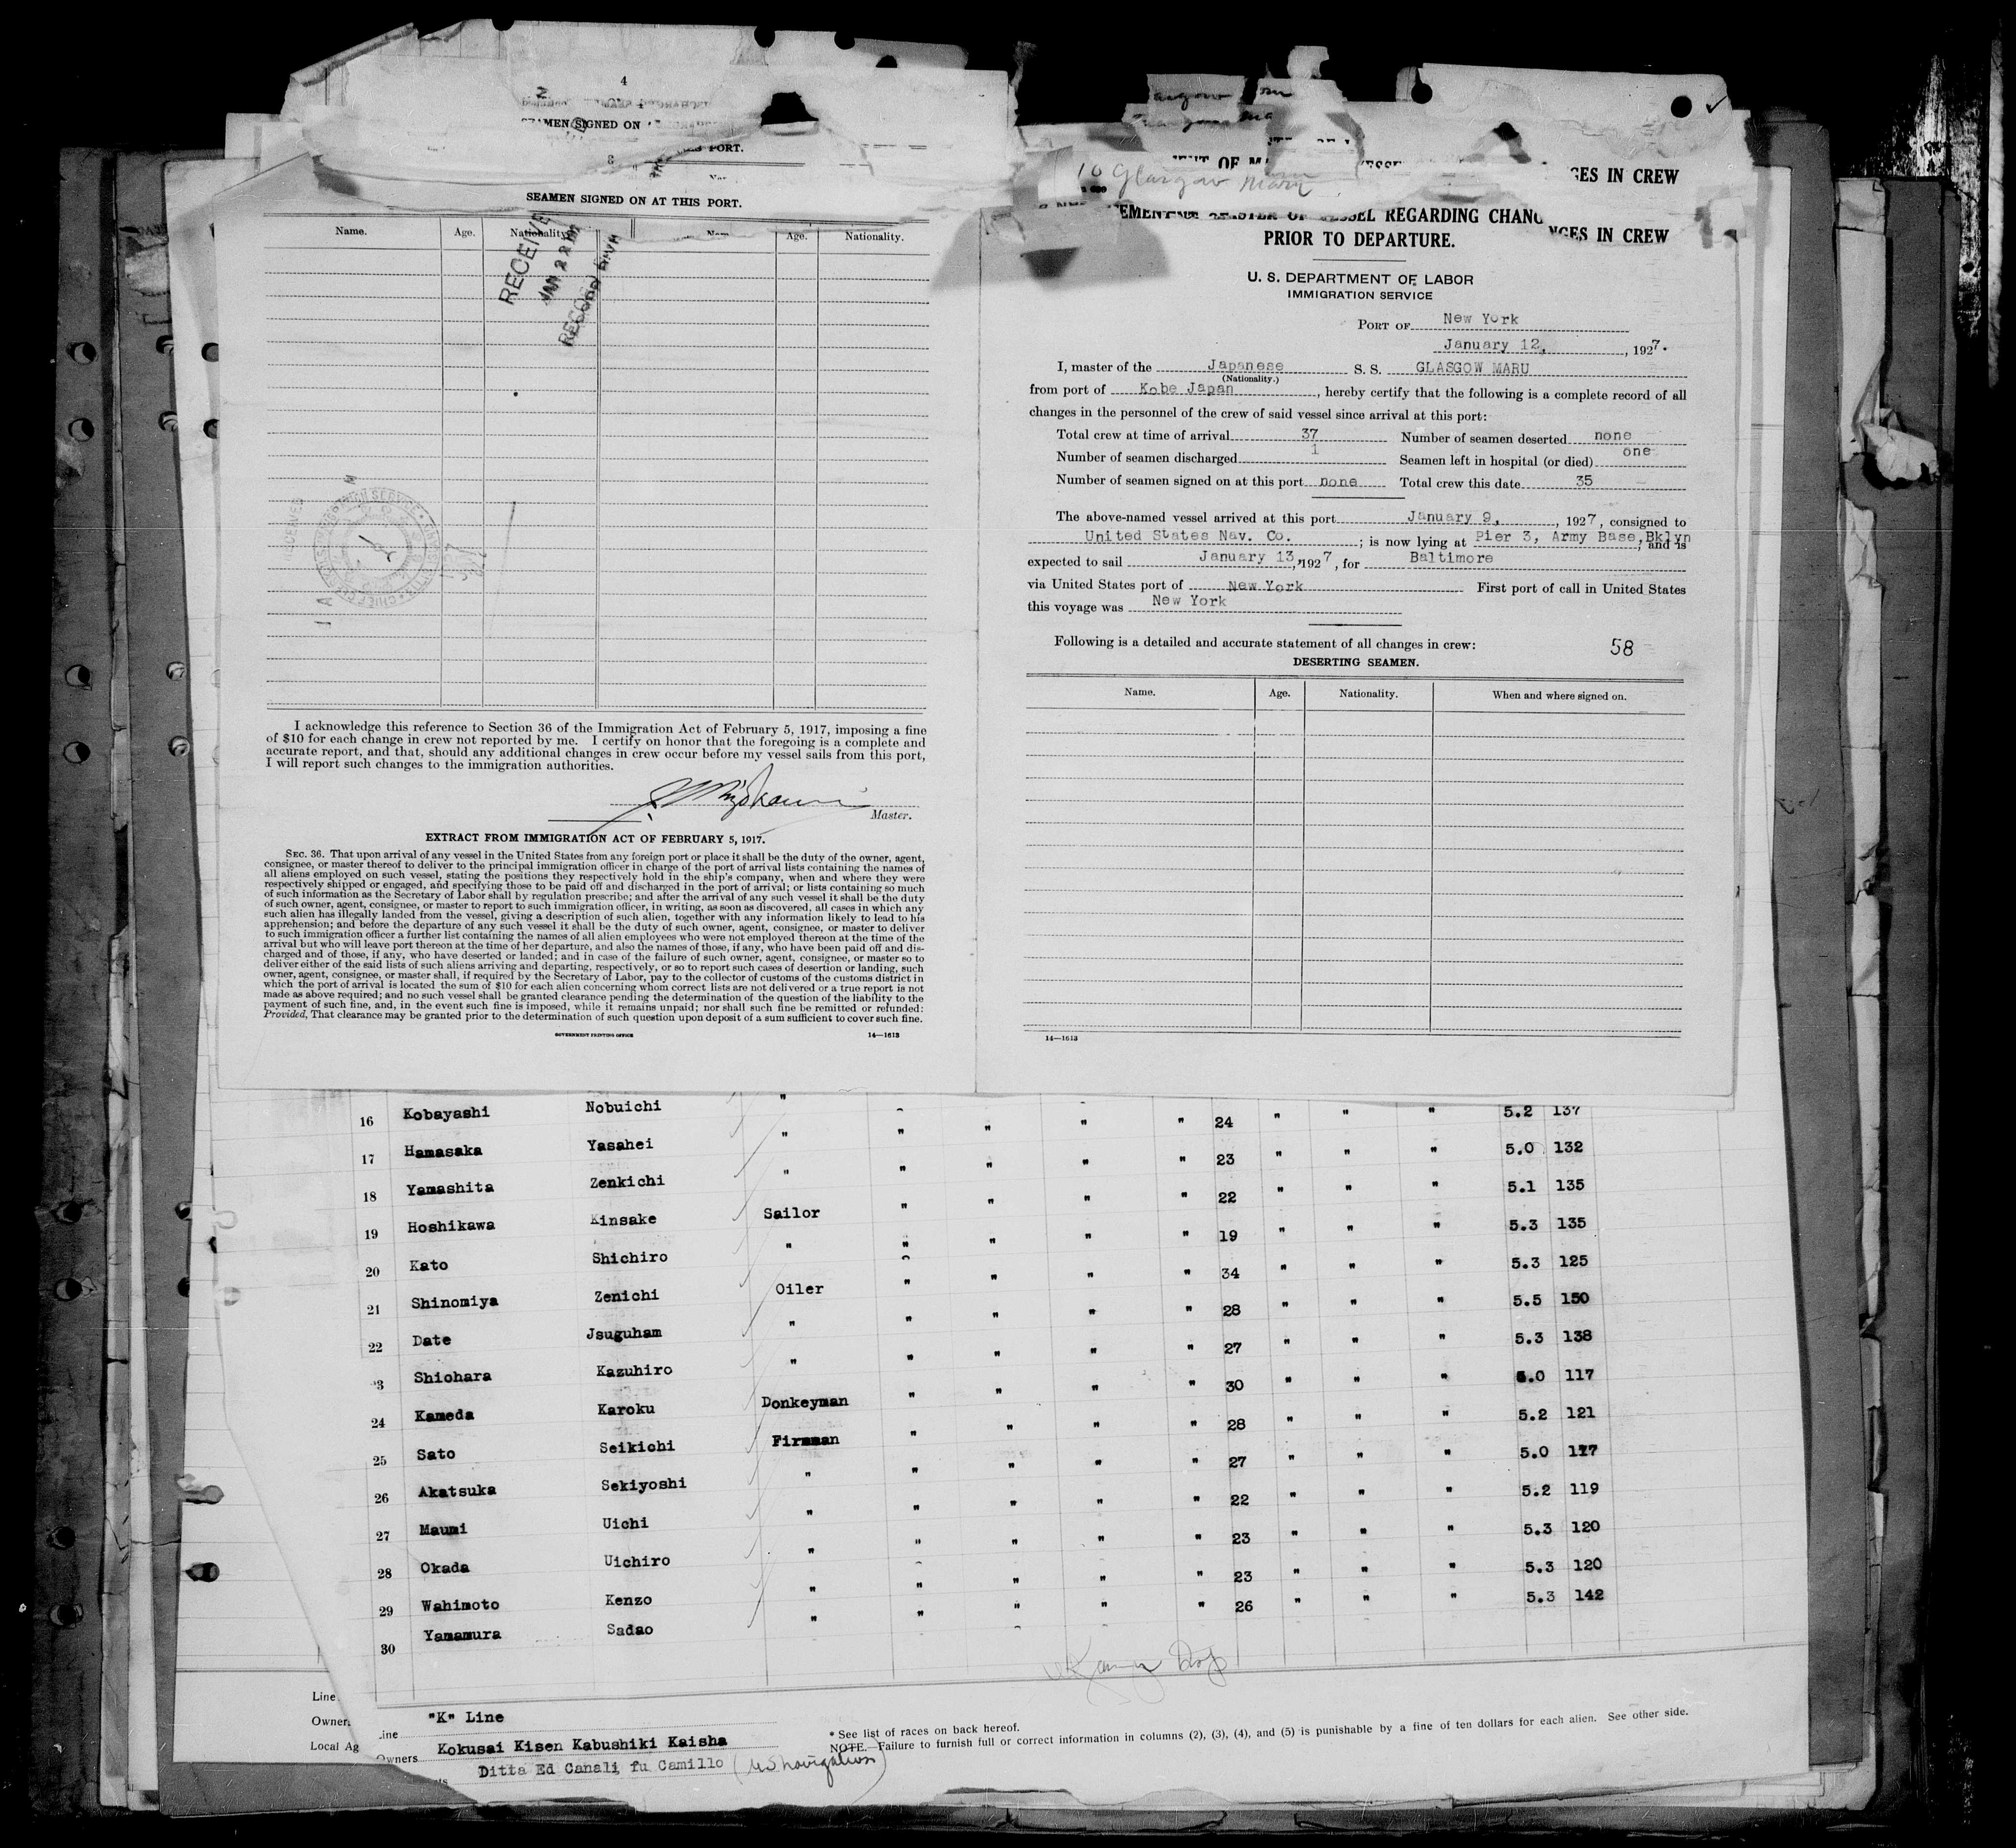 4
SEAMEN SIGNED ON
PORT.
SEAMEN SIGNED ON AT THIS PORT.
Name. Age. Nationality. Age. Nationality.
RECEIVE
JAN 22
RECORD DIV'N
RECEIVED
I acknowledge this reference to Section 36 of the Immigration Act of February 5, 1917, imposing a fine
of $10 for each change in crew not reported by me. I certify on honor that the foregoing is a complete and
accurate report, and that, should any additional changes in crew occur before my vessel sails from this port,
I will report such changes to the immigration authorities.
Master.
EXTRACT FROM IMMIGRATION ACT OF FEBRUARY 5, 1917.
SEC. 36. That upon arrival of any vessel in the United States from any foreign port or place it shall be the duty of the owner, agent,
consignee, or master thereof to deliver to the principal immigration officer in charge of the port of arrival lists containing the names of
all aliens employed on such vessel, stating the positions they respectively hold in the ship's company, when and where they were
respectively shipped or engaged, and specifying those to be paid off and discharged in the port of arrival; or lists containing so much
of such information as the Secretary of Labor shall by regulation prescribe; and after the arrival of any such vessel it shall be the duty
of such owner, agent, consignee, or master to report to such immigration officer, in writing, as soon as discovered, all cases in which any
such alien has illegally landed from the vessel, giving a description of such alien, together with any information likely to lead to his
apprehension; and before the departure of any such vessel it shall be the duty of such owner, agent, consignee, or master to deliver
to such immigration officer a further list containing the names of all alien employees who were not employed thereon at the time of the
arrival but who will leave port thereon at the time of her departure, and also the names of those, if any, who have been paid off and dis-
charged and of those, if any, who have deserted or landed; and in case of the failure of such owner, agent, consignee, or master so to
deliver either of the said lists of such aliens arriving and departing, respectively, or so to report such cases of desertion or landing, such
owner, agent, consignee, or master shall, if required by the Secretary of Labor, pay to the collector of customs of the customs district in
which the port of arrival is located the sum of $10 for each alien concerning whom correct lists are not delivered or a true report is not
made as above required; and no such vessel shall be granted clearance pending the determination of the question of the liability to the
payment of such fine, and, in the event such fine is imposed, while it remains unpaid; nor shall such fine be remitted or refunded:
Provided, That clearance may be granted prior to the determination of such question upon deposit of a sum sufficient to cover such fine.
GOVERNMENT PRINTING OFFICE 14—1613
GES IN CREW
10 Glasgow Maru
VESSEL REGARDING CHANG
NGES IN CREW
PRIOR TO DEPARTURE.
U. S. DEPARTMENT OF LABOR
IMMIGRATION SERVICE
PORT OF New York
January 12, , 1927.
I, master of the Japanese S. S. GLASGOW MARU
(Nationality.)
from port of Kobe Japan , hereby certify that the following is a complete record of all
changes in the personnel of the crew of said vessel since arrival at this port:
Total crew at time of arrival 37 Number of seamen deserted none
Number of seamen discharged 1 Seamen left in hospital (or died) one
Number of seamen signed on at this port none Total crew this date 35
The above-named vessel arrived at this port January 9, , 1927, consigned to
United States Nav. Co. ; is now lying at Pier 3, Army Base, Bklyn ; and is
expected to sail January 13, 1927, for Baltimore
via United States port of New York First port of call in United States
this voyage was New York
Following is a detailed and accurate statement of all changes in crew: 58
DESERTING SEAMEN.
Name. Age. Nationality. When and where signed on.
14—1613
16 Kobayashi Nobuichi " " " " " 24 " " " 5.2 137
17 Hamasaka Yasahei " " " " " 23 " " " 5.0 132
18 Yamashita Zenkichi " " " " " 22 " " " 5.1 135
19 Hoshikawa Kinsake Sailor " " " " 19 " " " 5.3 135
20 Kato Shichiro " " " " " 34 " " " 5.3 125
21 Shinomiya Zenichi Oiler " " " " 28 " " " 5.5 150
22 Date Jsuguham " " " " " 27 " " " 5.3 138
23 Shiohara Kazuhiro " " " " " 30 " " " 5.0 117
24 Kameda Karoku Donkeyman " " " " 28 " " " 5.2 121
25 Sato Seikichi Fireman " " " " 27 " " " 5.0 117
26 Akatsuka Sekiyoshi " " " " " 22 " " " 5.2 119
27 Maumi Uichi " " " " " 23 " " " 5.3 120
28 Okada Uichiro " " " " " 23 " " " 5.3 120
29 Wahimoto Kenzo " " " " " 26 " " " 5.3 142
30 Yamamura Sadao "
Line
Owner
Local Ag
Line "K" Line
Owners Kokusai Kisen Kabushiki Kaisha
Ditta Ed Canali fu Camillo (US Navigation)
* See list of races on back hereof.
NOTE.—Failure to furnish full or correct information in columns (2), (3), (4), and (5) is punishable by a fine of ten dollars for each alien. See other side.